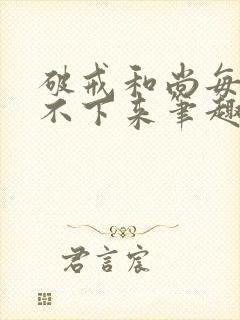 破戒和尚每
不下来笔趣
君言宸